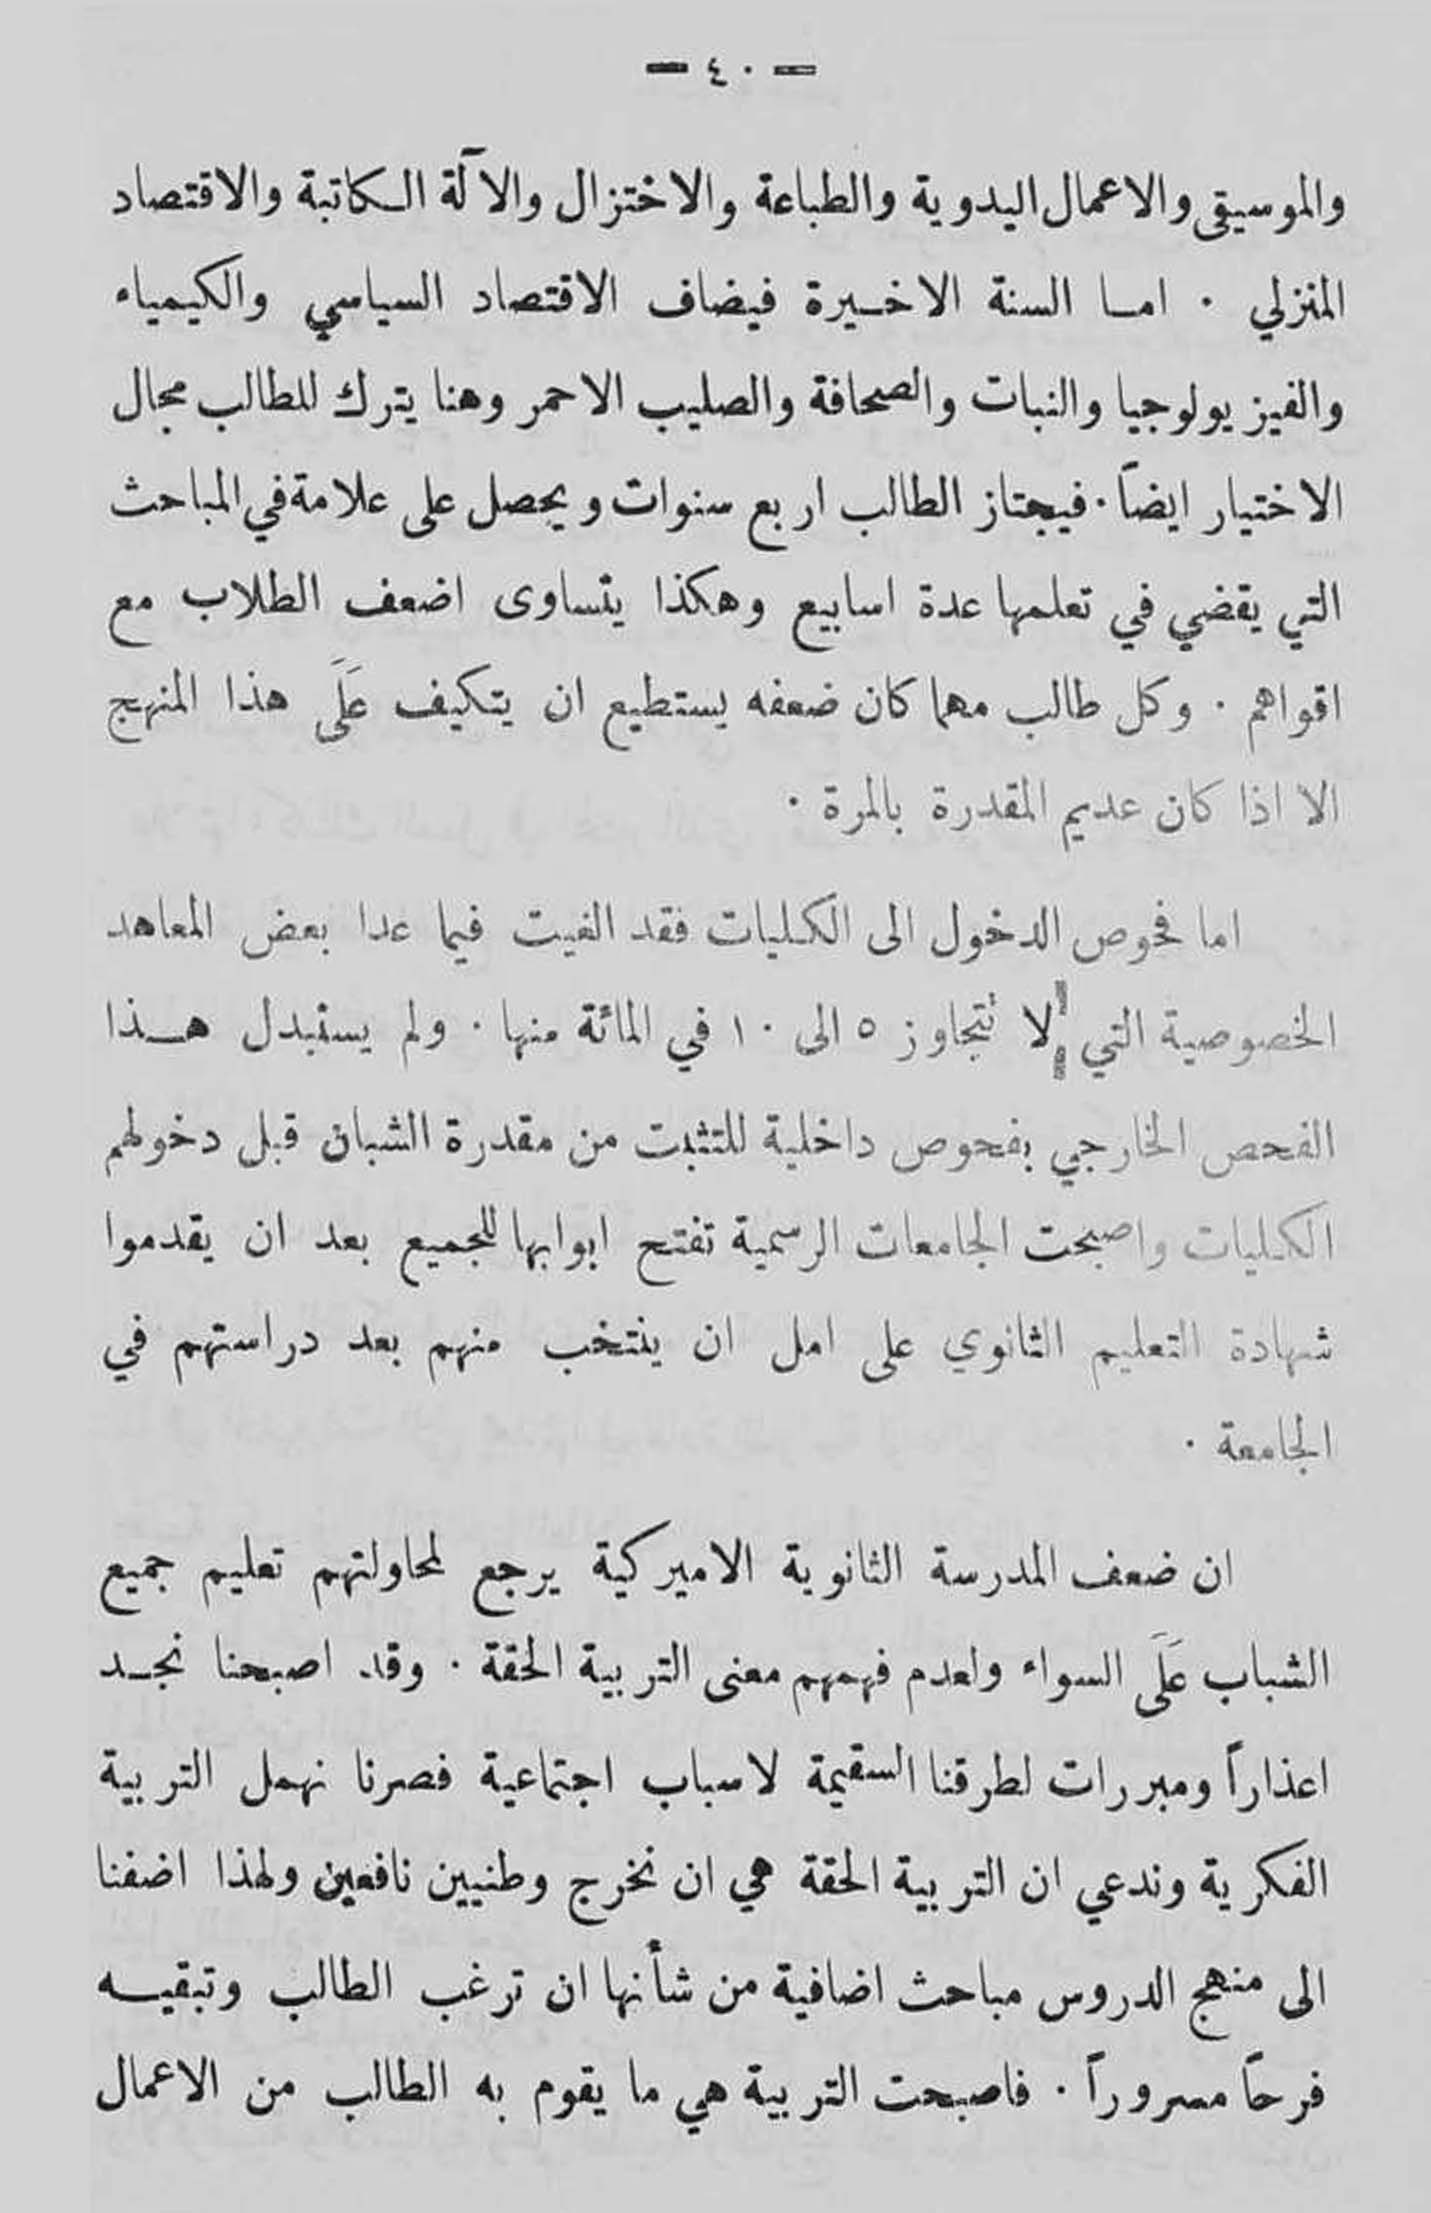 — ٤٠ —
والموسيقى والاعمال اليدوية والطباعة والاختزال والآلة الكاتبة والاقتصاد
المنزلي . اما السنة الاخيرة فيضاف الاقتصاد السياسي والكيمياء
والفيزيولوجيا والنبات والصحافة والصليب الاحمر وهنا يترك للطالب مجال
الاختيار ايضاً . فيجتاز الطالب اربع سنوات ويحصل على علامة في المباحث
التي يقضي في تعلمها عدة اسابيع وهكذا يتساوى اضعف الطلاب مع
اقواهم . وكل طالب مهما كان ضعفه يستطيع ان يتكيف عَلَى هذا المنهج
الا اذا كان عديم المقدرة بالمرة .
اما فحوص الدخول الى الكليات فقد الغيت فيما عدا بعض المعاهد
الخصوصية التي لا تتجاوز ٥ الى ١٠ في المائة منها . ولم يستبدل هذا
الفحص الخارجي بفحوص داخلية للتثبت من مقدرة الشبان قبل دخولهم
الكليات واصبحت الجامعات الرسمية تفتح ابوابها للجميع بعد ان يقدموا
شهادة التعليم الثانوي على امل ان ينتخب منهم بعد دراستهم في
الجامعة .
ان ضعف المدرسة الثانوية الاميركية يرجع لمحاولتهم تعليم جميع
الشباب عَلَى السواء ولعدم فهمهم معنى التربية الحقة . وقد اصبحنا نجد
اعذاراً ومبررات لطرقنا السقيمة لاسباب اجتماعية فصرنا نهمل التربية
الفكرية وندعي ان التربية الحقة هي ان نخرج وطنيين نافعين ولهذا اضفنا
الى منهج الدروس مباحث اضافية من شأنها ان ترغب الطالب وتبقيه
فرحاً مسروراً . فاصبحت التربية هي ما يقوم به الطالب من الاعمال